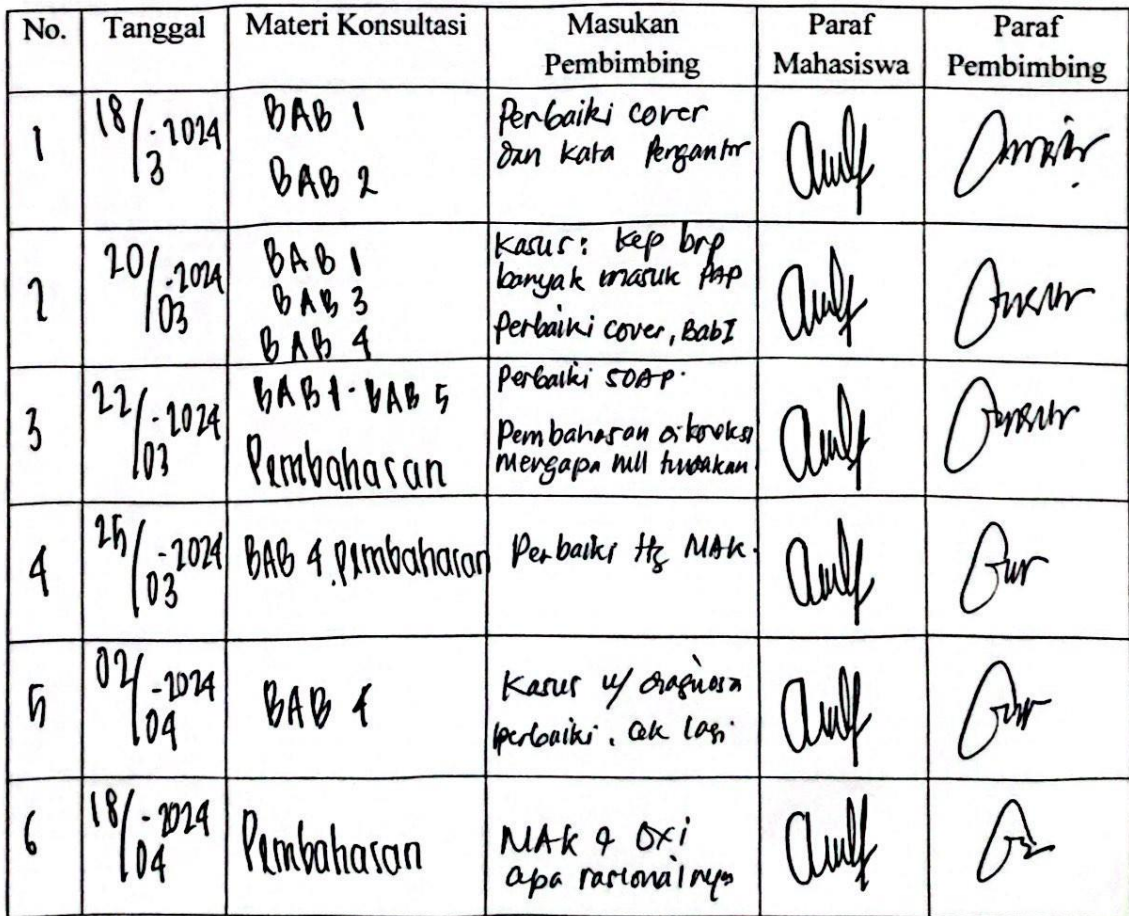 No. Tanggal Materi Konsultasi Masukan Pembimbing Paraf Mahasiswa Paraf Pembimbing
1 18/3-2024 BAB 1 Perbaiki cover
BAB 2 dan kata Pengantr
2 20/03-2024 BAB 1 Kasus: Kep brp
BAB 3 banyak masuk PAP
BAB 4 Perbaiki cover, Bab I
3 22/03-2024 BAB 1-BAB 5 Perbaiki SOAP.
Pembahasan Pembahasan dikoreksi
mengapa tindakan
4 25/03-2024 BAB 4 pembahasan Perbaiki MAK.
5 02/04-2024 BAB 4 Kasus u/ diagnosa
perbaiki. cek lagi.
6 18/04-2024 Pembahasan MAK & OXi
apa rasionalnya